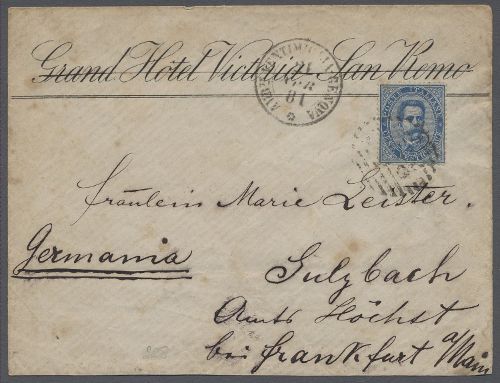 Grand Hôtel Victoria, San Remo
VENTIMIGLIA GENOVA
81
POSTE ITALIANE
Fräulein Marie Leister.
Germania
Sulzbach
Amts Höchst
bei Frankfurt a/Main